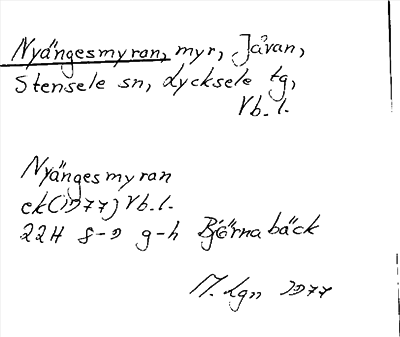 Nyängesmyran, myr, Jåvan,
Stensele sn, Lycksele tg,
Vb. l.
Nyängesmyran
ek(1977) Vb. l.
22H 8-9 g-h Björnabäck
M. Lgn 1977